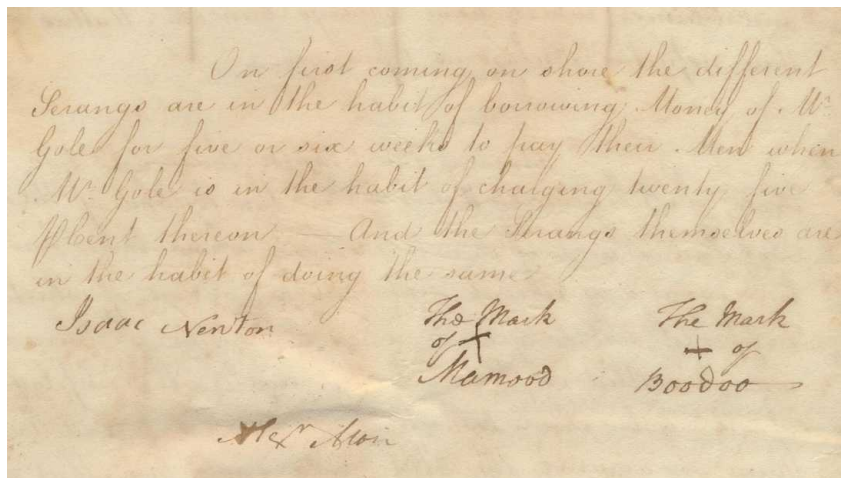 On first coming on shore the different
Serangs are in the habit of borrowing Money of Mr.
Gole for five or six weeks to pay their Men when
Mr. Gole is in the habit of charging twenty five
P Cent thereon — And the Serangs themselves are
in the habit of doing the same
Isaac Newton
The Mark
of +
Mamood
The Mark
+ of
Boodoo
Alexr